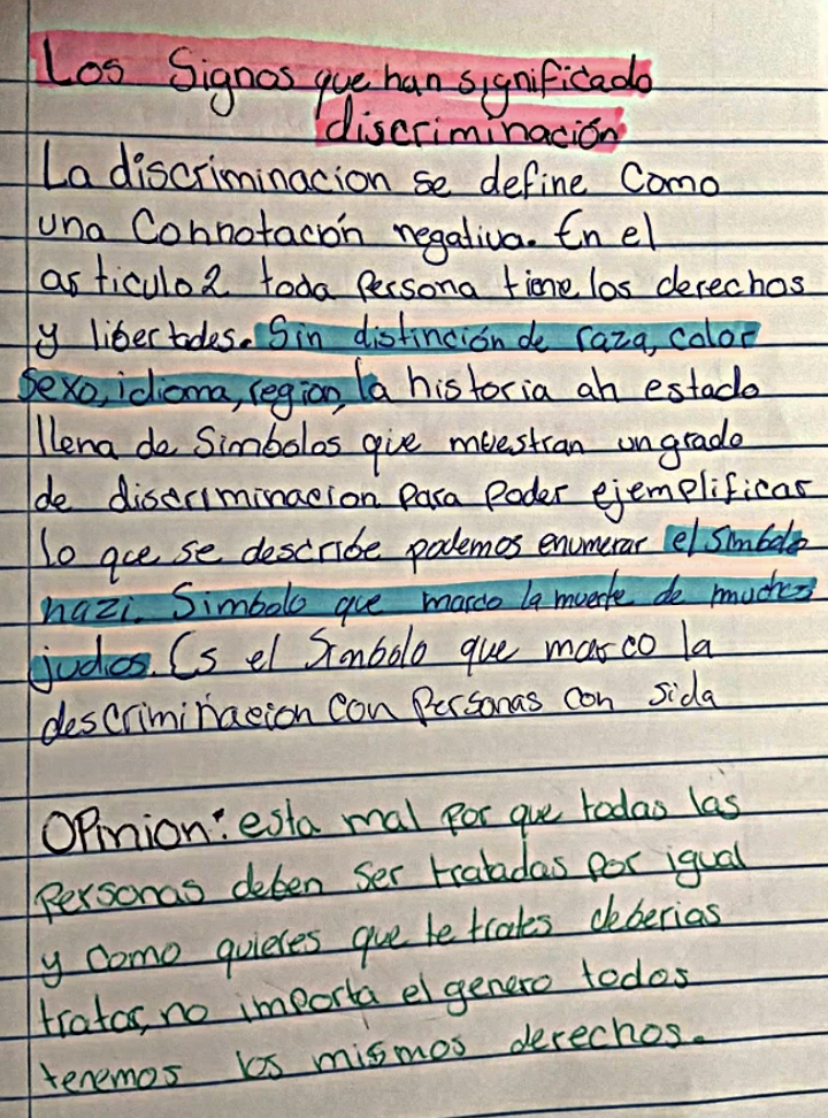 Los Signos que han significado
discriminación
La discriminacion se define Como
una Connotación negativa. En el
articulo 2 toda Persona tiene los derechos
y libertades. Sin distinción de raza, color
Sexo, idioma, region, la historia ah estado
llena de Simbolos que muestran un grado
de discriminacion Para Poder ejemplificar
lo que se describe podemos enumerar el Simbolo
nazi. Simbolo que marco la muerte de muchos
judios. Es el Simbolo que marco la
descriminacion Con Personas con sida
OPinion: esta mal por que todas las
Personas deben ser tratadas por igual
y como quieres que te trates deberias
tratar, no importa el genero todos
tenemos los mismos derechos.